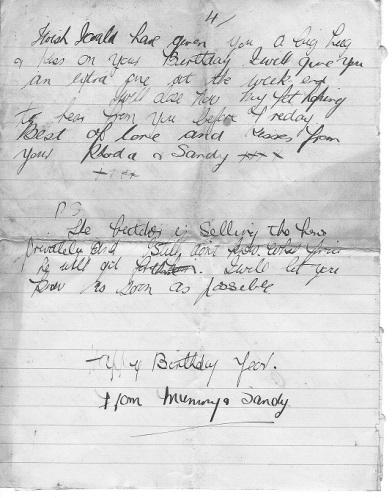 4/
I wish I could have given you a big hug
& kiss on your Birthday I will give you
an extra one out the week end
I will close now my Pet hoping
to hear from you before Friday
Best of love and kisses from
your Rhoda & Sandy xxx
x x x x
P.S
The is Selling the
privately and Still don't know what price
he will get I will let you
know as soon as possible
Birthday
From Mummy & Sandy